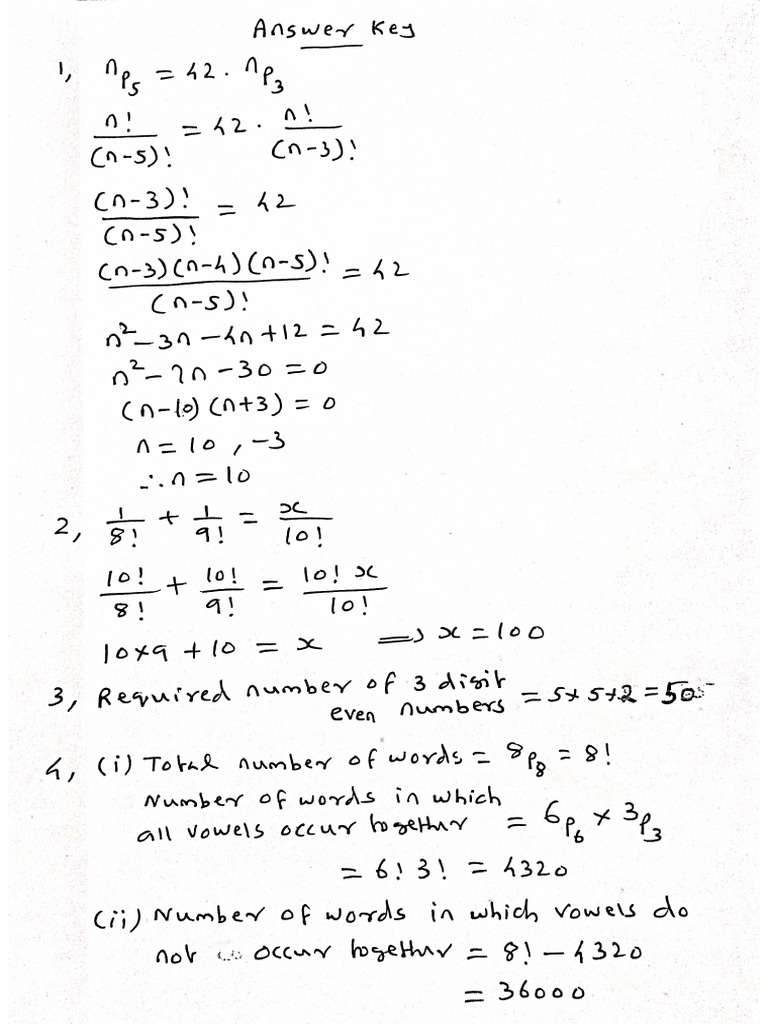 Answer Key
1, nP5 = 42 . nP3
n!/(n-5)! = 42 . n!/(n-3)!
(n-3)!/(n-5)! = 42
(n-3)(n-4)(n-5)!/(n-5)! = 42
n² - 3n - 4n + 12 = 42
n² - 7n - 30 = 0
(n-10)(n+3) = 0
n = 10, -3
∴ n = 10
2, 1/8! + 1/9! = x/10!
10!/8! + 10!/9! = 10! x/10!
10×9 + 10 = x ⟹ x = 100
3, Required number of 3 digit even numbers = 5×5×2 = 50
4, (i) Total number of words = 8P8 = 8!
Number of words in which
all vowels occur together = 6P6 × 3P3
= 6! 3! = 4320
(ii) Number of words in which vowels do
not occur together = 8! - 4320
= 36000